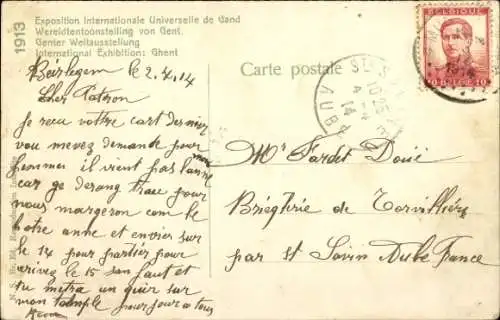 1913
Exposition Internationale Universelle de Gand
Wereldtentoonstelling von Gent.
Genter Weltausstellung
International Exhibition: Ghent
Carte postale
BELGIQUE
BELGIE
10
AUBE
14
le 2.4.14
Cher Patron
je recu vottre cart dernier
vou mevez demande pour
hommer il vient pas l'anne
car ge derang trau pour
nous mangeron com le
hotre anne et envier sur
le 14 pour partier pour
arivez le 15 san faut et
tu metra un quier sur
mon pour jour a tous
Mr Fardet Doué
Briqterie de Torvilliére
par st Savin Aube France